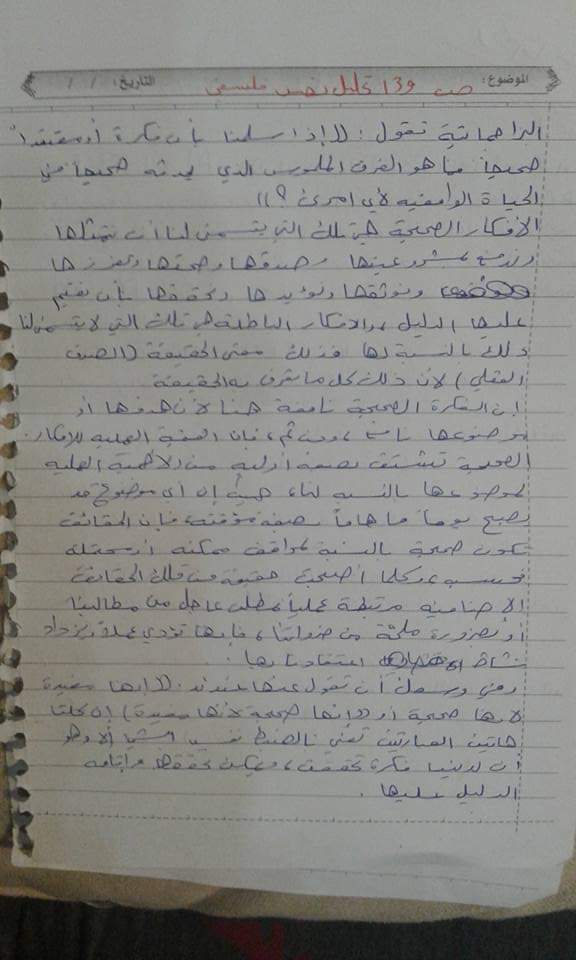 الموضوع: ص 139 تحليل نص فلسفي التاريخ: / /
البراجماتية تقول: ((إذا سلمنا بأن فكرة أو معتقدا"
صحيحا" ما هو الفرق الملموس الذي يحدثه صحيحا" في
الحياة الواقعية لأي امرئ ؟))
الأفكار الصحيحة هي تلك التي يتسنى لنا أن نتمثلها
وندمغ مشروعيتها وصدقها وصحتها ونعززها
ونوثقها ونؤيدها ونحققها بأن نقيم
عليها الدليل، والافكار الباطلة هي تلك التي لا يتسنى لنا
ذلك بالنسبة لها فذلك معنى الحقيقة (الصدق
العقلي) لأن ذلك كل ما تعرف به الحقيقة
إن الفكرة الصحيحة نافعة هنا لأن هدفها أو
موضوعها نافع، ومن ثم، فإن القيمة العملية للافكار
الصحيحة تشتق بصفة أولية من الأهمية العملية
لموضوعها بالنسبة لنا، حيث إن أي موضوع قد
يصبح يوما" ما هاما" بصفة مؤقتة، فإن الحقائق
تكون صحيحة بالنسبة لمواقف ممكنة أو محتملة
فحسب، وكلما أصبحت حقيقة من تلك الحقائق
الإضافية مرتبطة عمليا" بمطلب عاجل من مطالبنا
أو بضرورة ملحة من ضروراتنا، فإنها تؤدي عملا" ويزداد
نشاط اعتقادنا بها.
وفي وسعك أن تقول عنها عندئذ: ((إنها مفيدة
لأنها صحيحة أو ((إنها صحيحة لأنها مفيدة) إن كلتا
هاتين العبارتين تعني بالضبط نفس الشيء ألا وهو
أن لدينا فكرة تحققت، ويمكن تحققها وإقامة
الدليل عليها.